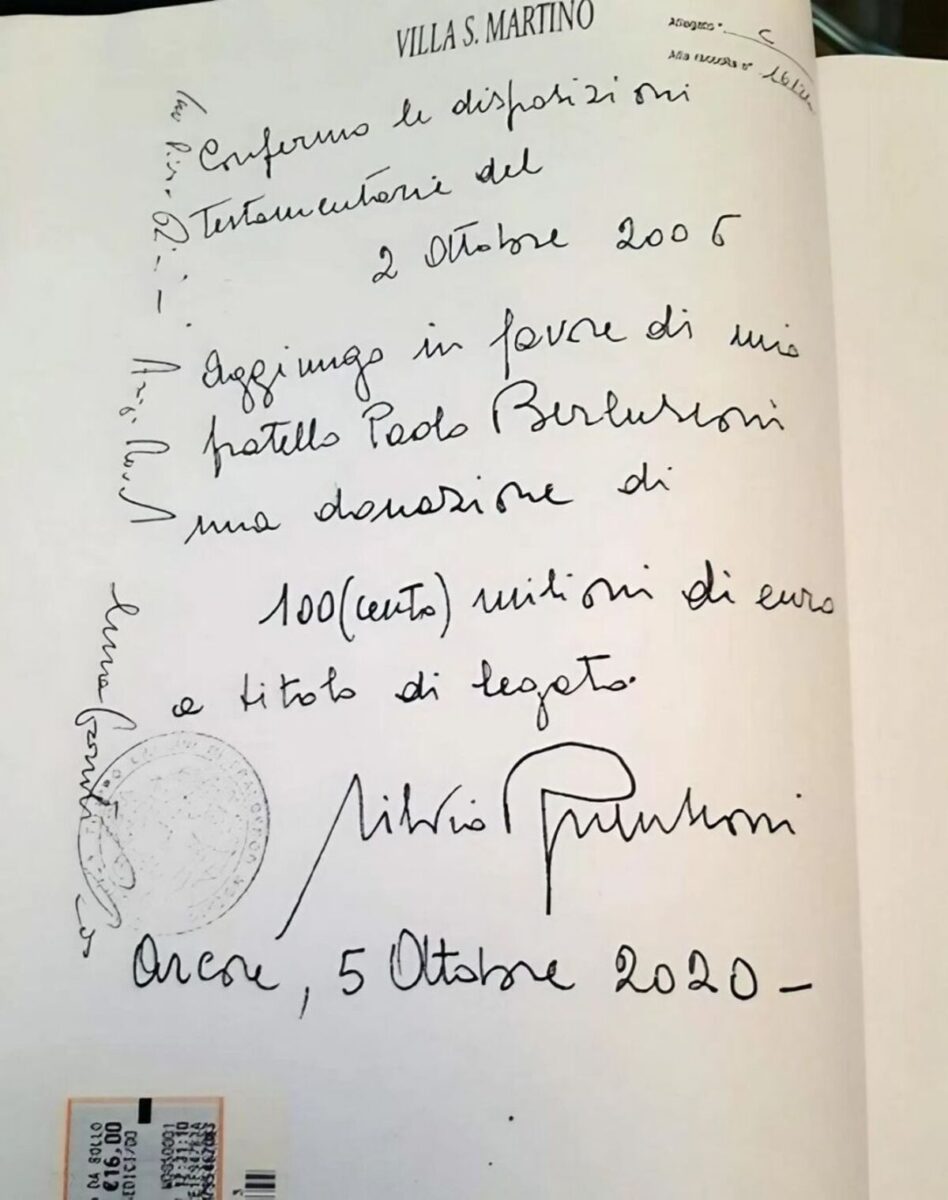 VILLA S. MARTINO
Allegato
C
Alla raccolta n°
Confermo le disposizioni
Testamentarie del
2 Ottobre 2006
Aggiungo in favore di mio
fratello Paolo Berlusconi
una donazione di
100 (cento) milioni di euro
a titolo di legato.
Silvio Berlusconi
Arcore, 5 Ottobre 2020 -
DA BOLLO
€16,00